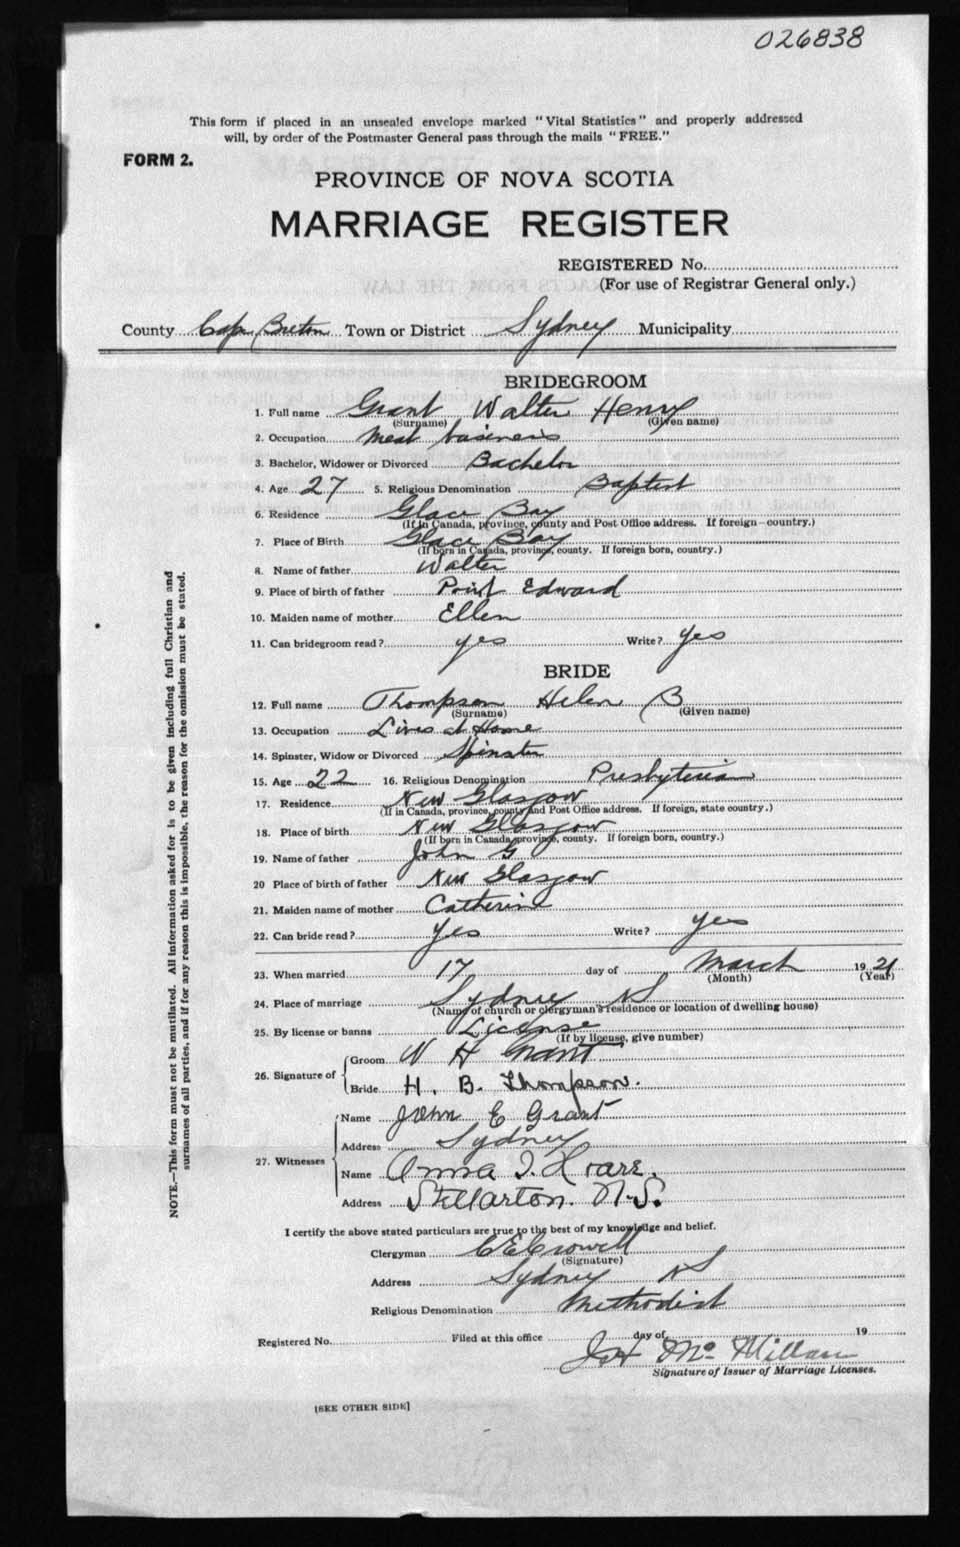 026838
This form if placed in an unsealed envelope marked "Vital Statistics" and properly addressed
will, by order of the Postmaster General pass through the mails "FREE."
FORM 2.
PROVINCE OF NOVA SCOTIA
MARRIAGE REGISTER
REGISTERED No.
(For use of Registrar General only.)
County Cape Breton Town or District Sydney Municipality
BRIDEGROOM
1. Full name Grant Walter Henry
(Surname) (Given name)
2. Occupation Meat business
3. Bachelor, Widower or Divorced Bachelor
4. Age 27 5. Religious Denomination Baptist
6. Residence Glace Bay
(If in Canada, province, county and Post Office address. If foreign—country.)
7. Place of Birth Glace Bay
(If born in Canada, province, county. If foreign born, country.)
8. Name of father Walter
9. Place of birth of father Point Edward
10. Maiden name of mother Ellen
11. Can bridegroom read? yes Write? yes
BRIDE
12. Full name Thompson Helen B
(Surname) (Given name)
13. Occupation Lives at Home
14. Spinster, Widow or Divorced Spinster
15. Age 22 16. Religious Denomination Presbyterian
17. Residence New Glasgow
(If in Canada, province, county and Post Office address. If foreign, state country.)
18. Place of birth New Glasgow
(If born in Canada, province, county. If foreign born, country.)
19. Name of father John G
20 Place of birth of father New Glasgow
21. Maiden name of mother Catherine
22. Can bride read? yes Write? yes
23. When married 17 day of March 1921
(Month) (Year)
24. Place of marriage Sydney NS
(Name of church or clergyman's residence or location of dwelling house)
25. By license or banns License
(If by license, give number)
26. Signature of Groom W H Grant
Bride H. B. Thompson.
27. Witnesses Name John E Grant
Address Sydney
Name Anna I. Hoare.
Address Stellarton. N.S.
I certify the above stated particulars are true to the best of my knowledge and belief.
Clergyman C E Crowell
(Signature)
Address Sydney NS
Religious Denomination Methodist
Registered No. Filed at this office day of 19
McMillan
Signature of Issuer of Marriage Licenses.
[SEE OTHER SIDE]
NOTE.—This form must not be mutilated. All information asked for is to be given including full Christian and
surnames of all parties, and if for any reason this is impossible, the reason for the omission must be stated.